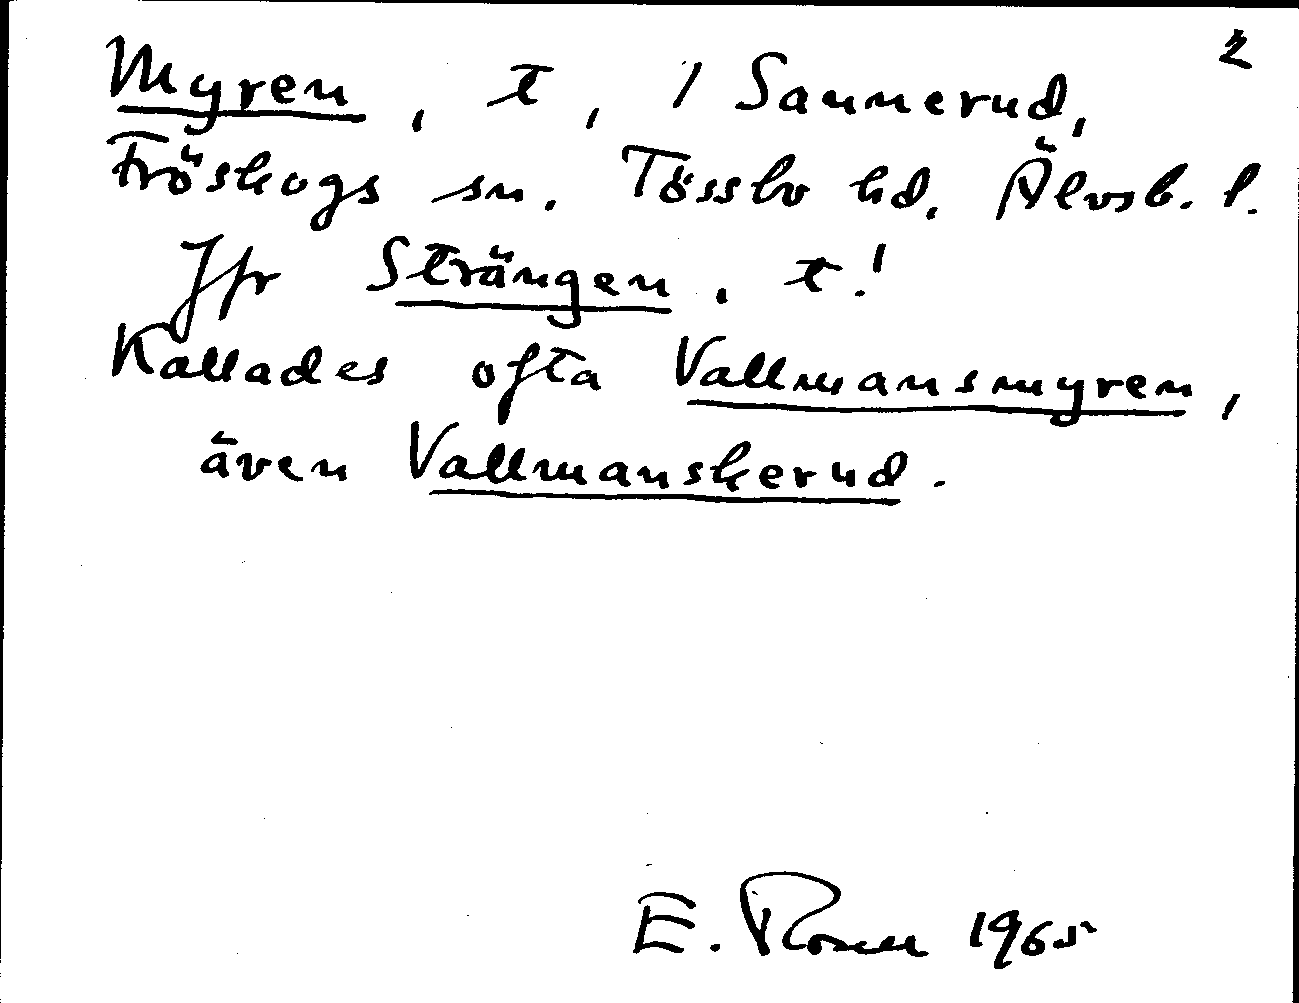 2
Myren, t, / Sannerud,
Fröskogs sn. Tössbo hd. Älvsb. l.
Jfr Strängen, t.!
Kallades ofta Vallmansmyren,
även Vallmanskerud.
E. Rosen 1965